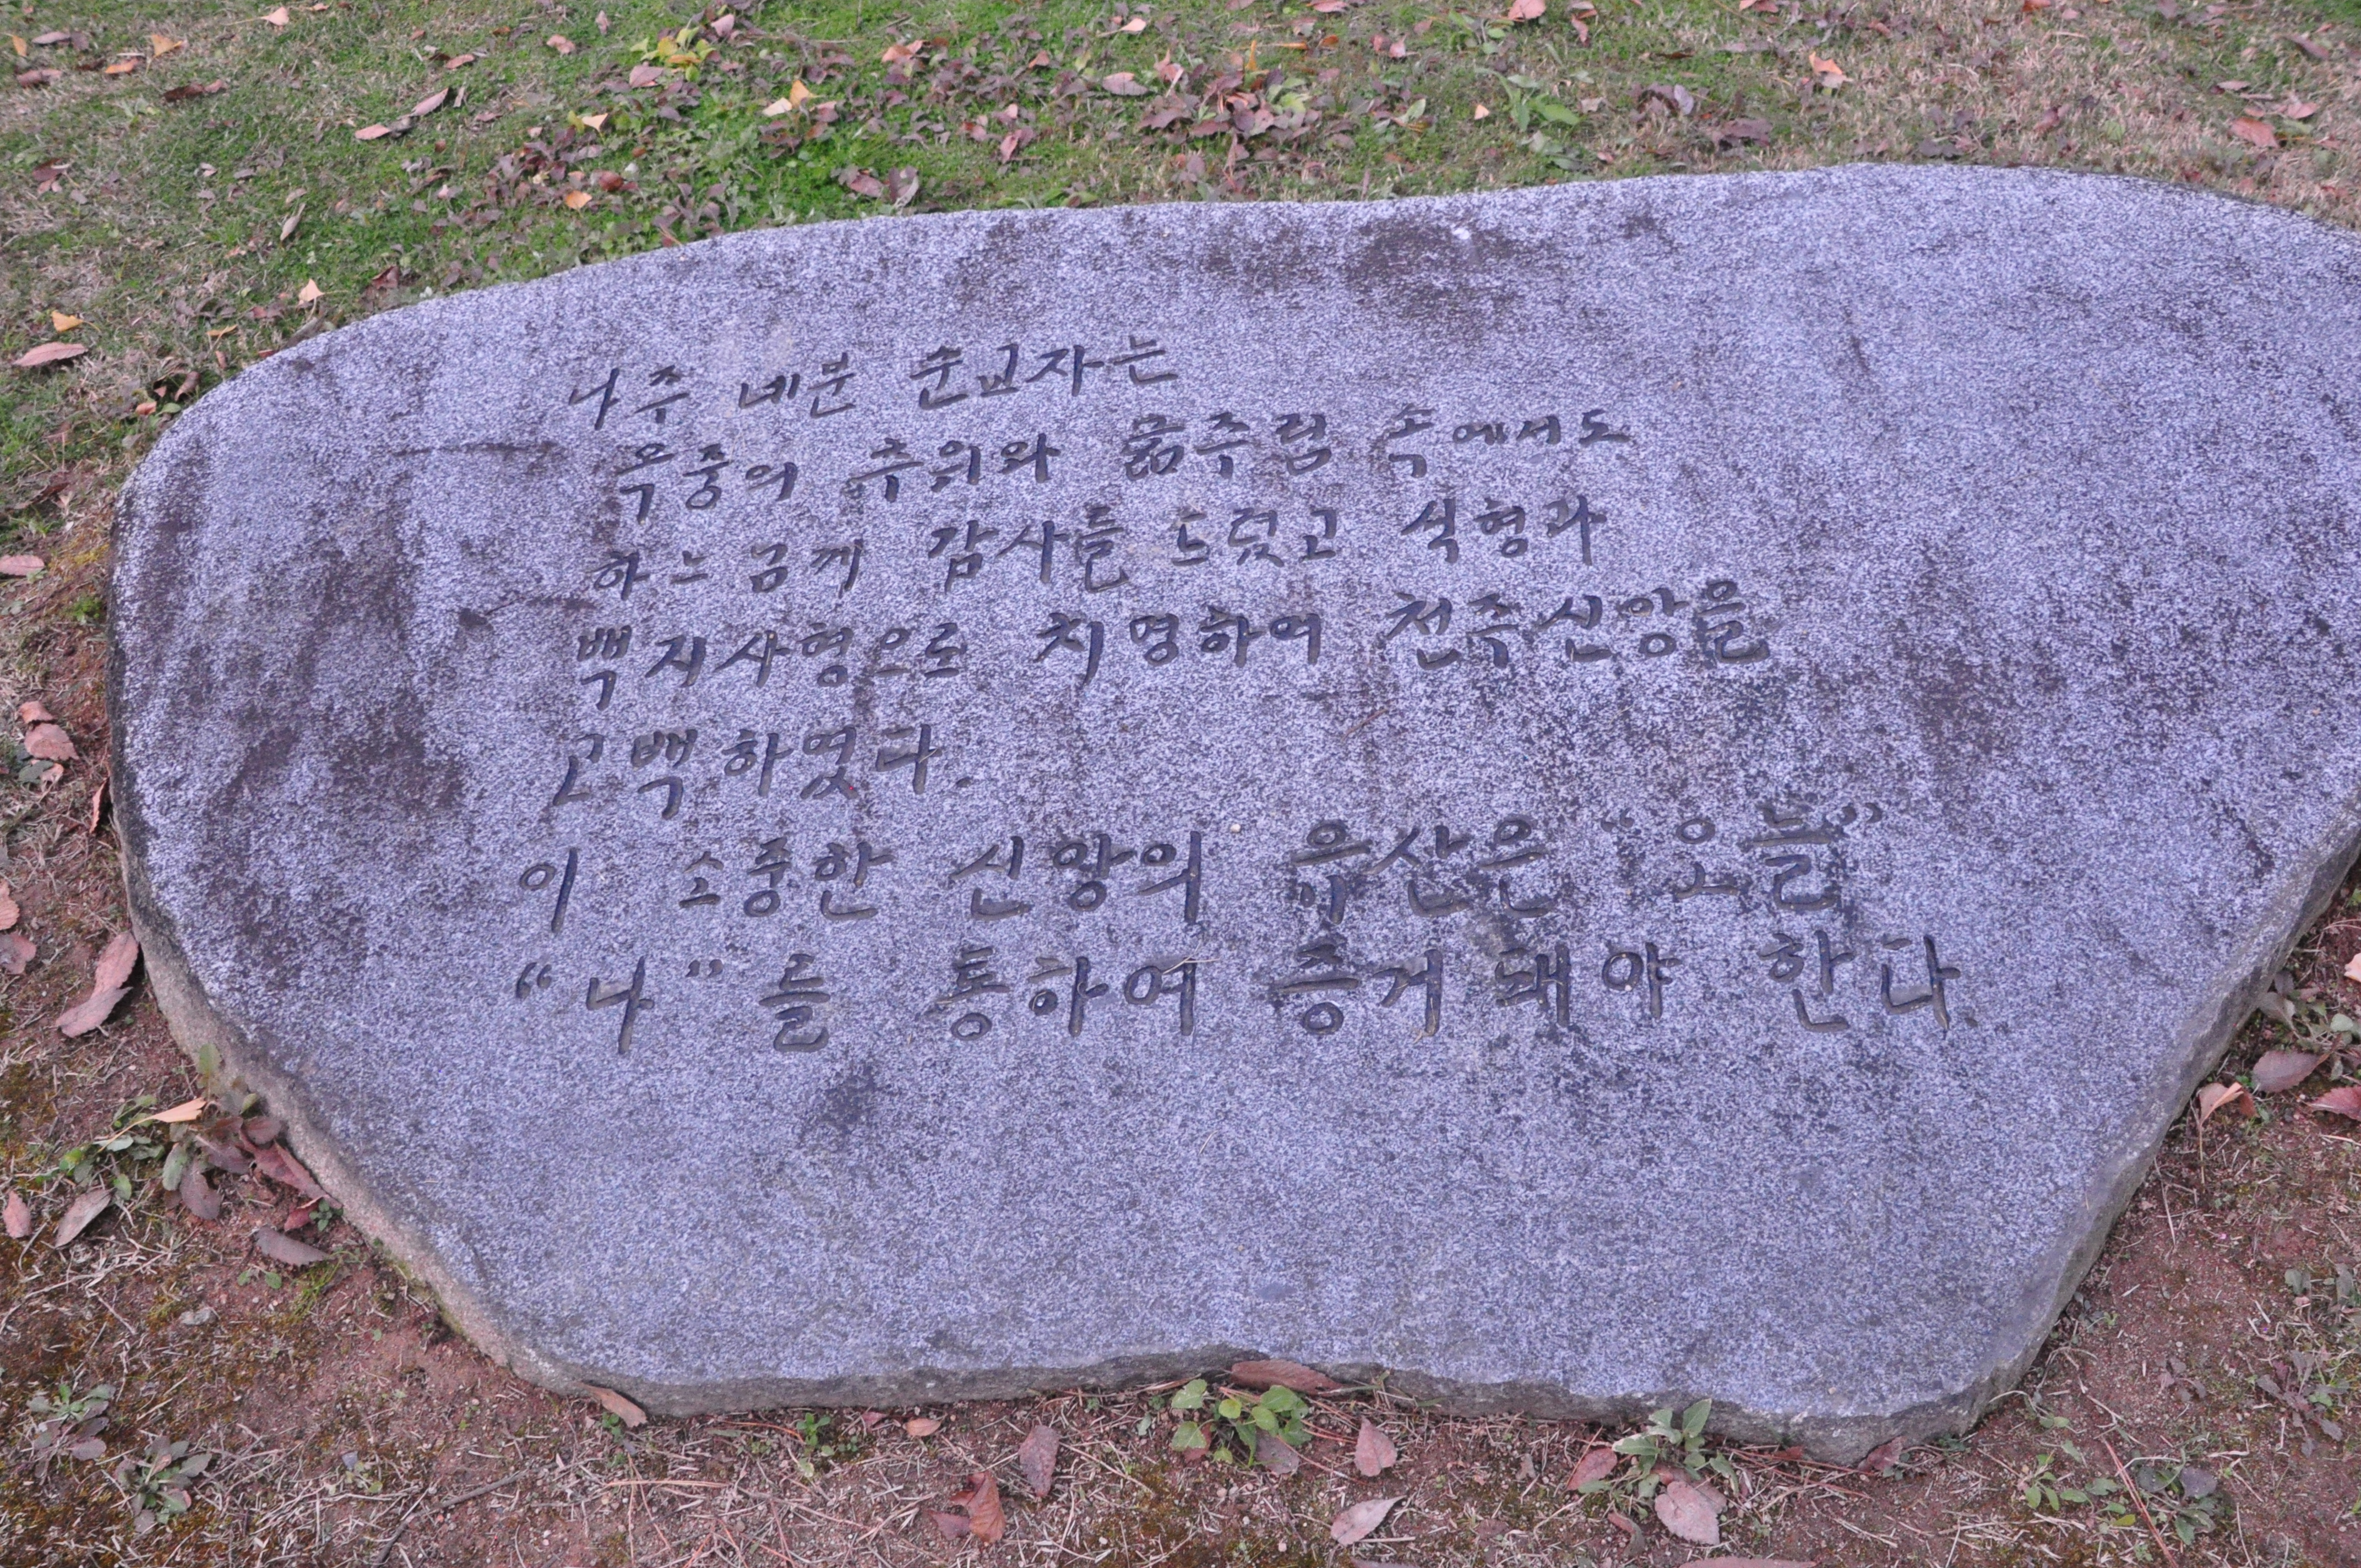 나주 네분 순교자는
옥중의 추위와 굶주림 속에서도
하느님께 감사를 드렸고 석형과
백지사형으로 치명하여 천주신앙을
고백하였다.
이 소중한 신앙의 유산은 "오늘"
"나"를 통하여 증거돼야 한다.